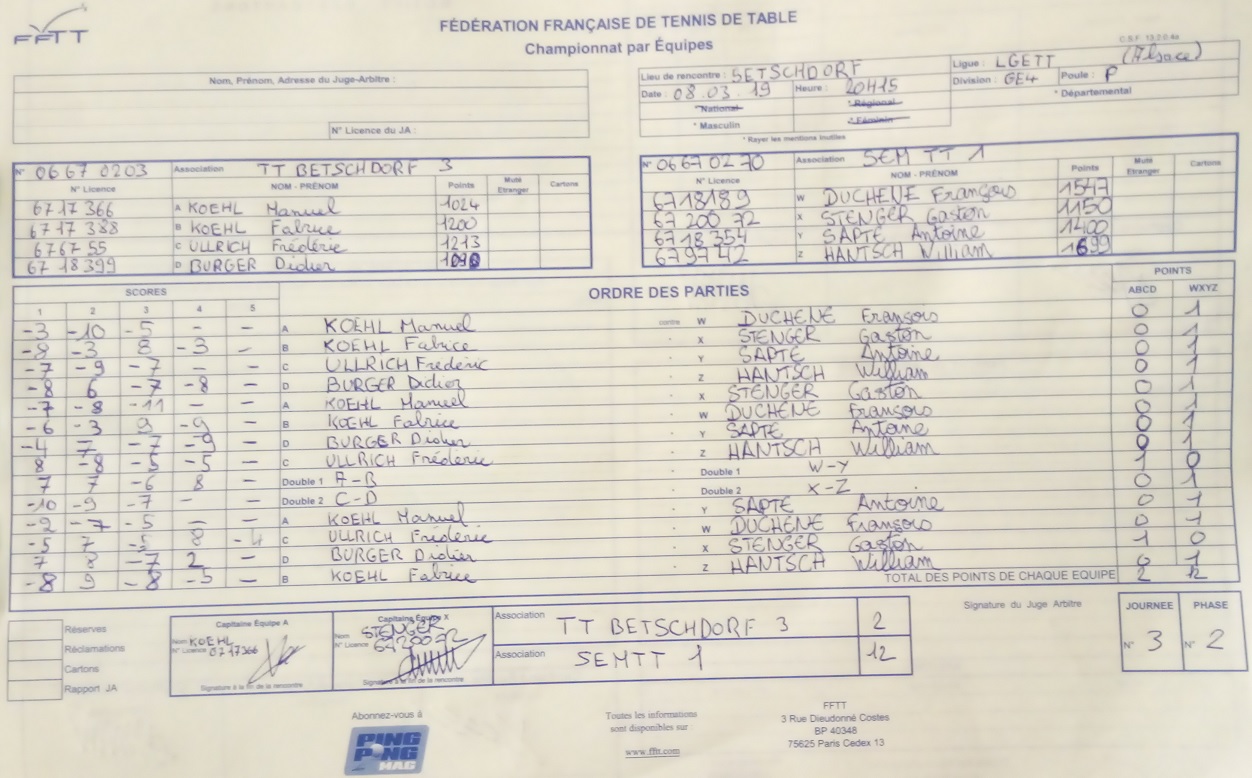 FFTT
FÉDÉRATION FRANÇAISE DE TENNIS DE TABLE
Championnat par Équipes
C.S.F. 13.2.0.4a
Nom, Prénom, Adresse du Juge-Arbitre :
N° Licence du JA :
Lieu de rencontre : BETSCHDORF
Ligue : LGETT (Alsace)
Date : 08.03.19 Heure : 20H15
Division : GE4 Poule : P
* National * Régional * Départemental
* Masculin * Féminin
* Rayer les mentions inutiles
N° 0667 0203 Association TT BETSCHDORF 3
N° Licence NOM - PRÉNOM Points Muté Etranger Cartons
67 17 366 A KOEHL Manuel 1024
67 17 388 B KOEHL Fabrice 1200
6767 55 C ULLRICH Frédéric 1213
67 18 399 D BURGER Didier 1090
N° 0667 0270 Association SEM TT 1
N° Licence NOM - PRÉNOM Points Muté Etranger Cartons
67 18189 W DUCHENE François 1547
67 200 72 X STENGER Gaston 1150
67 18 354 Y SAPTE Antoine 1400
6797 42 Z HANTSCH William 1699
SCORES ORDRE DES PARTIES POINTS
1 2 3 4 5 ABCD WXYZ
-3 -10 -5 - - A KOEHL Manuel contre W DUCHENE François 0 1
-8 -3 8 -3 - B KOEHL Fabrice X STENGER Gaston 0 1
-7 -9 -7 - - C ULLRICH Frédéric Y SAPTE Antoine 0 1
-8 6 -7 -8 - D BURGER Didier Z HANTSCH William 0 1
-7 -8 -11 - - A KOEHL Manuel X STENGER Gaston 0 1
-6 -3 9 -9 - B KOEHL Fabrice W DUCHENE François 0 1
-4 7 -7 -9 - D BURGER Didier Y SAPTE Antoine 0 1
8 -8 -5 -5 - C ULLRICH Frédéric Z HANTSCH William 0 1
7 7 -6 8 - Double 1 A-B Double 1 W-Y 1 0
-10 -9 -7 - - Double 2 C-D Double 2 X-Z 0 1
-9 -7 -5 - - A KOEHL Manuel Y SAPTE Antoine 0 1
-5 7 -5 8 -4 C ULLRICH Frédéric W DUCHENE François 0 1
7 8 -7 2 - D BURGER Didier X STENGER Gaston 1 0
-8 9 -8 -5 - B KOEHL Fabrice Z HANTSCH William 0 1
TOTAL DES POINTS DE CHAQUE EQUIPE 2 12
Réserves
Réclamations
Cartons
Rapport JA
Capitaine Équipe A
Nom KOEHL
N° Licence 6717366
Signature à la fin de la rencontre
Capitaine Équipe X
Nom STENGER
N° Licence 6720072
Signature à la fin de la rencontre
Association TT BETSCHDORF 3 2
Association SEMTT 1 12
Signature du Juge Arbitre
JOURNEE PHASE
N° 3 N° 2
Abonnez-vous à
PING PONG MAG
Toutes les informations
sont disponibles sur :
www.fftt.com
FFTT
3 Rue Dieudonné Costes
BP 40348
75625 Paris Cedex 13